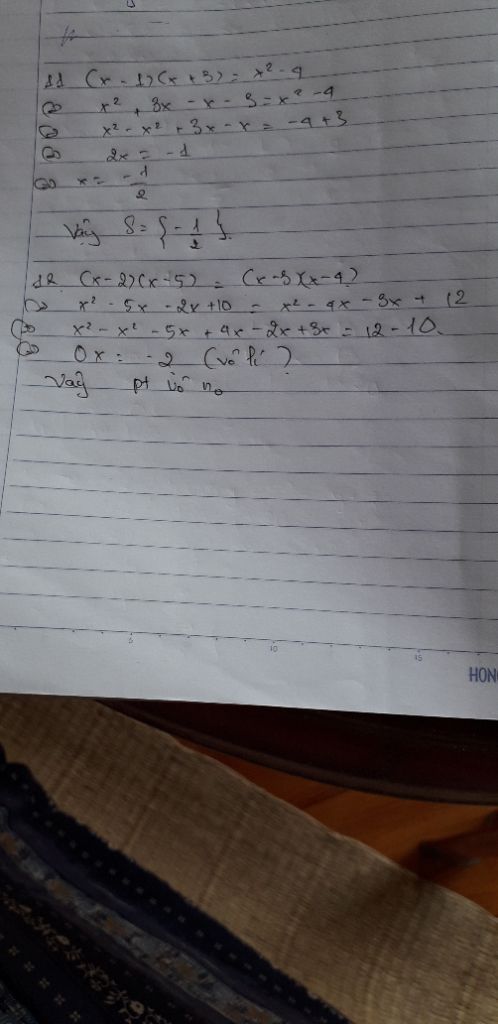 11 (x - 1)(x + 3) = x² - 4
⇔ x² + 3x - x - 3 = x² - 4
⇔ x² - x² + 3x - x = -4 + 3
⇔ 2x = -1
⇔ x = -1/2
Vậy S = { -1/2 }.
12 (x - 2)(x - 5) = (x - 3)(x - 4)
⇔ x² - 5x - 2x + 10 = x² - 4x - 3x + 12
⇔ x² - x² - 5x + 4x - 2x + 3x = 12 - 10.
⇔ 0x = -2 (vô lí)
Vậy pt vô no
5
10
15
HON